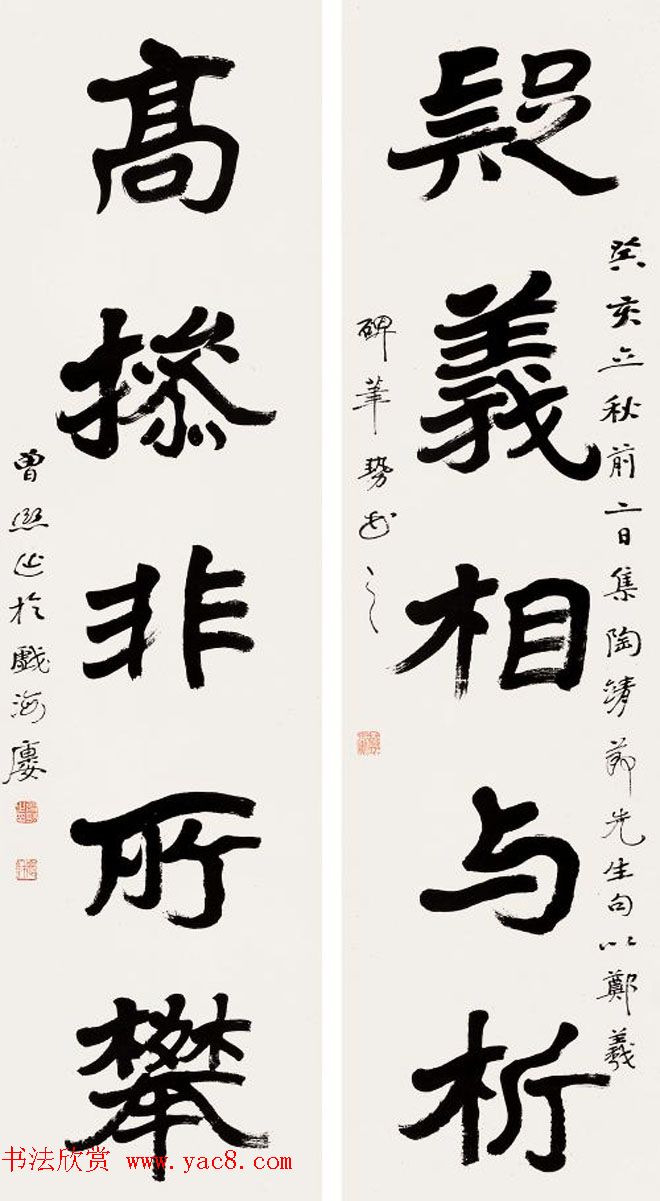 疑義相与析
癸亥立秋前二日集陶靖節先生句以鄭羲
碑筆勢書之
高操非所攀
曾熙并於戲海廔
书法欣赏 www.yac8.com